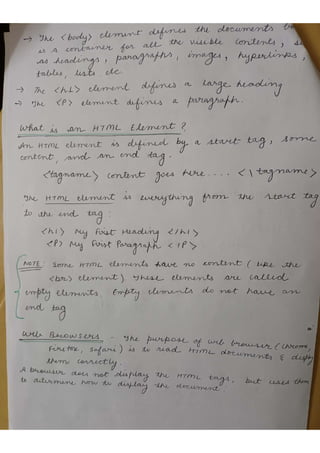 → The <body> element defines the documents
is a container for all the visible contents,
as headings, paragraphs, images, hyperlinks,
tables, lists etc
→ The <h1> element defines a large heading
→ The <P> element defines a paragraph.
What is an HTML Element?
An HTML element is defined by a start tag, some
content, and an end tag.
<tagname> content goes here.... <\tagname>
The HTML element is everything from the start tag
to the end tag:
<h1> My First Heading </h1>
<P> My First Paragraph </P>
NOTE: Some HTML elements have no content (like the
<br> element). These elements are called
empty elements. Empty elements do not have an
end tag
Web Browsers - The purpose of web browser (chrome,
firefox, safari) is to read HTML documents & display
them correctly.
A browser does not display the HTML tags, but uses them
to determine how to display the document